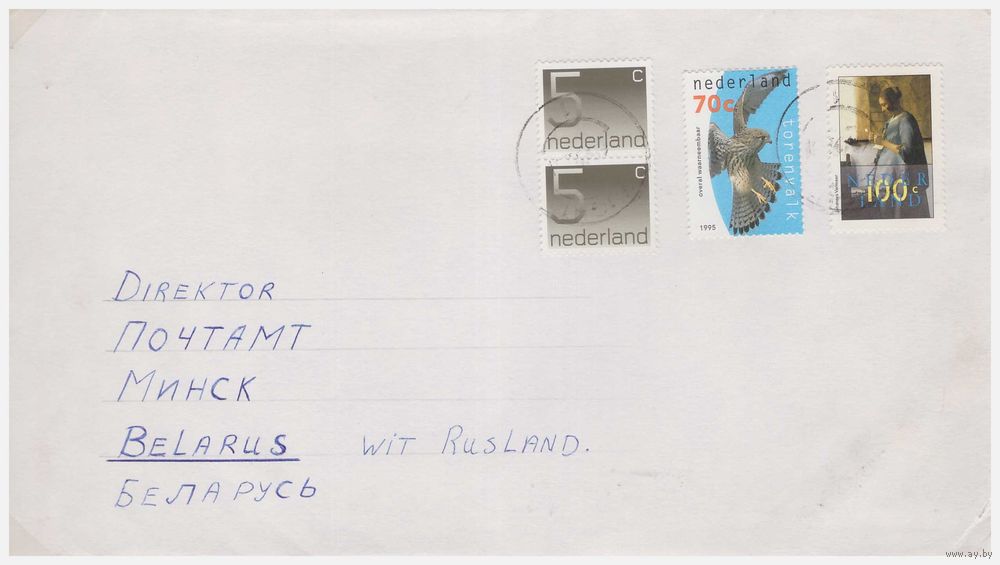 5 c
nederland
5 c
nederland
nederland
70c
torenvalk
overal waarneembaar
1995
NEDER
LAND
100 c
Johannes Vermeer
DIREKTOR
ПОЧТАМТ
МИНСК
BELARUS WIT RUSLAND.
БЕЛАРУСЬ
www.ay.by